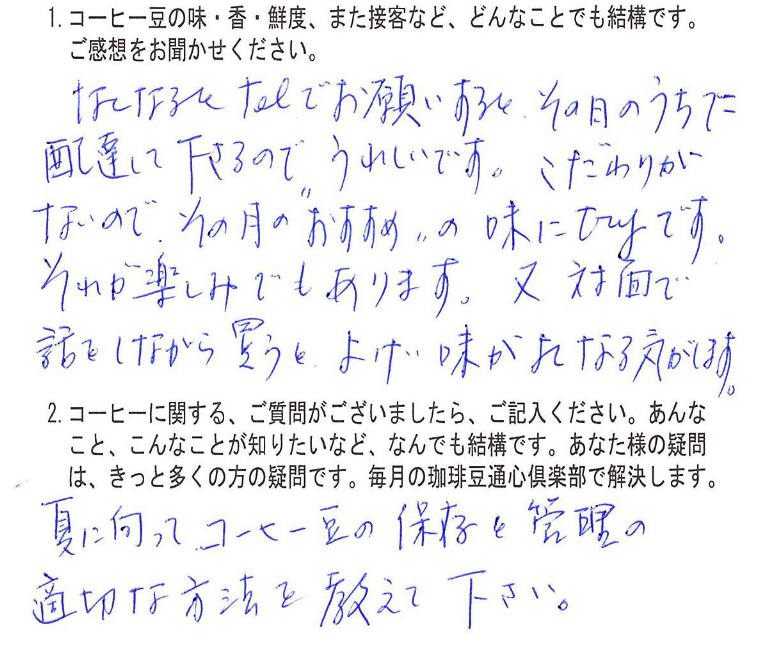 1. コーヒー豆の味・香・鮮度、また接客など、どんなことでも結構です。
ご感想をお聞かせください。
なくなるとTelでお願いすると、その日のうちに
配達して下さるので、うれしいです。こだわりが
ないので、その月の"おすすめ"の味にtryです。
それが楽しみでもあります。又対面で
話をしながら買うと、よけい味がよくなる気がします。
2. コーヒーに関する、ご質問がございましたら、ご記入ください。あんな
こと、こんなことが知りたいなど、なんでも結構です。あなた様の疑問
は、きっと多くの方の疑問です。毎月の珈琲豆通心倶楽部で解決します。
夏に向って、コーヒー豆の保存と管理の
適切な方法を教えて下さい。